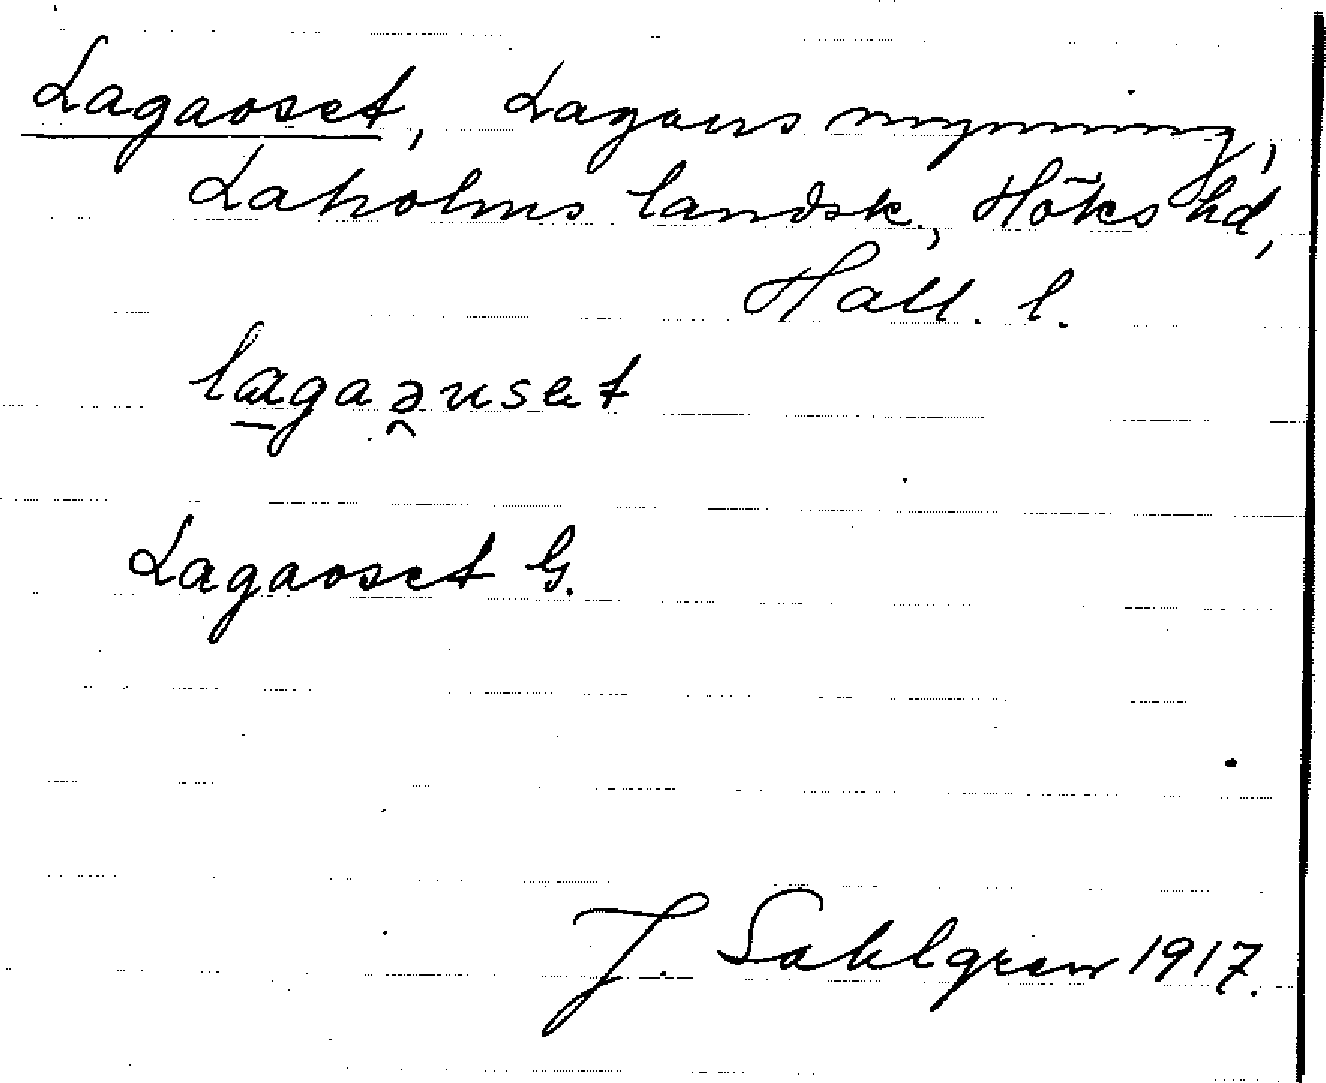 Lagaoset, Lagans mynning,
Laholms landsk., Höks hd,
Hall. l.
lagaəuset
Lagaoset G.
J. Sahlgren 1917.